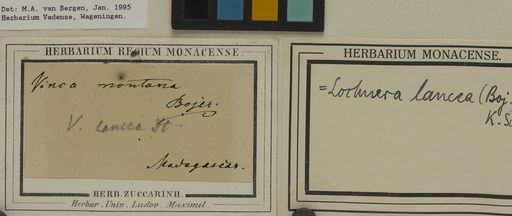 Det: M.A. van Bergen, Jan. 1995
Herbarium Vadense, Wageningen.
HERBARIUM REGIUM MONACENSE
Vinca montana
Bojer.
V. lancea
Madagascar.
HERB. ZUCCARINII.
Herbar. Univ. Ludov. Maximil.
HERBARIUM MONACENSE.
=Lochnera lancea (Boj.
K. Sc